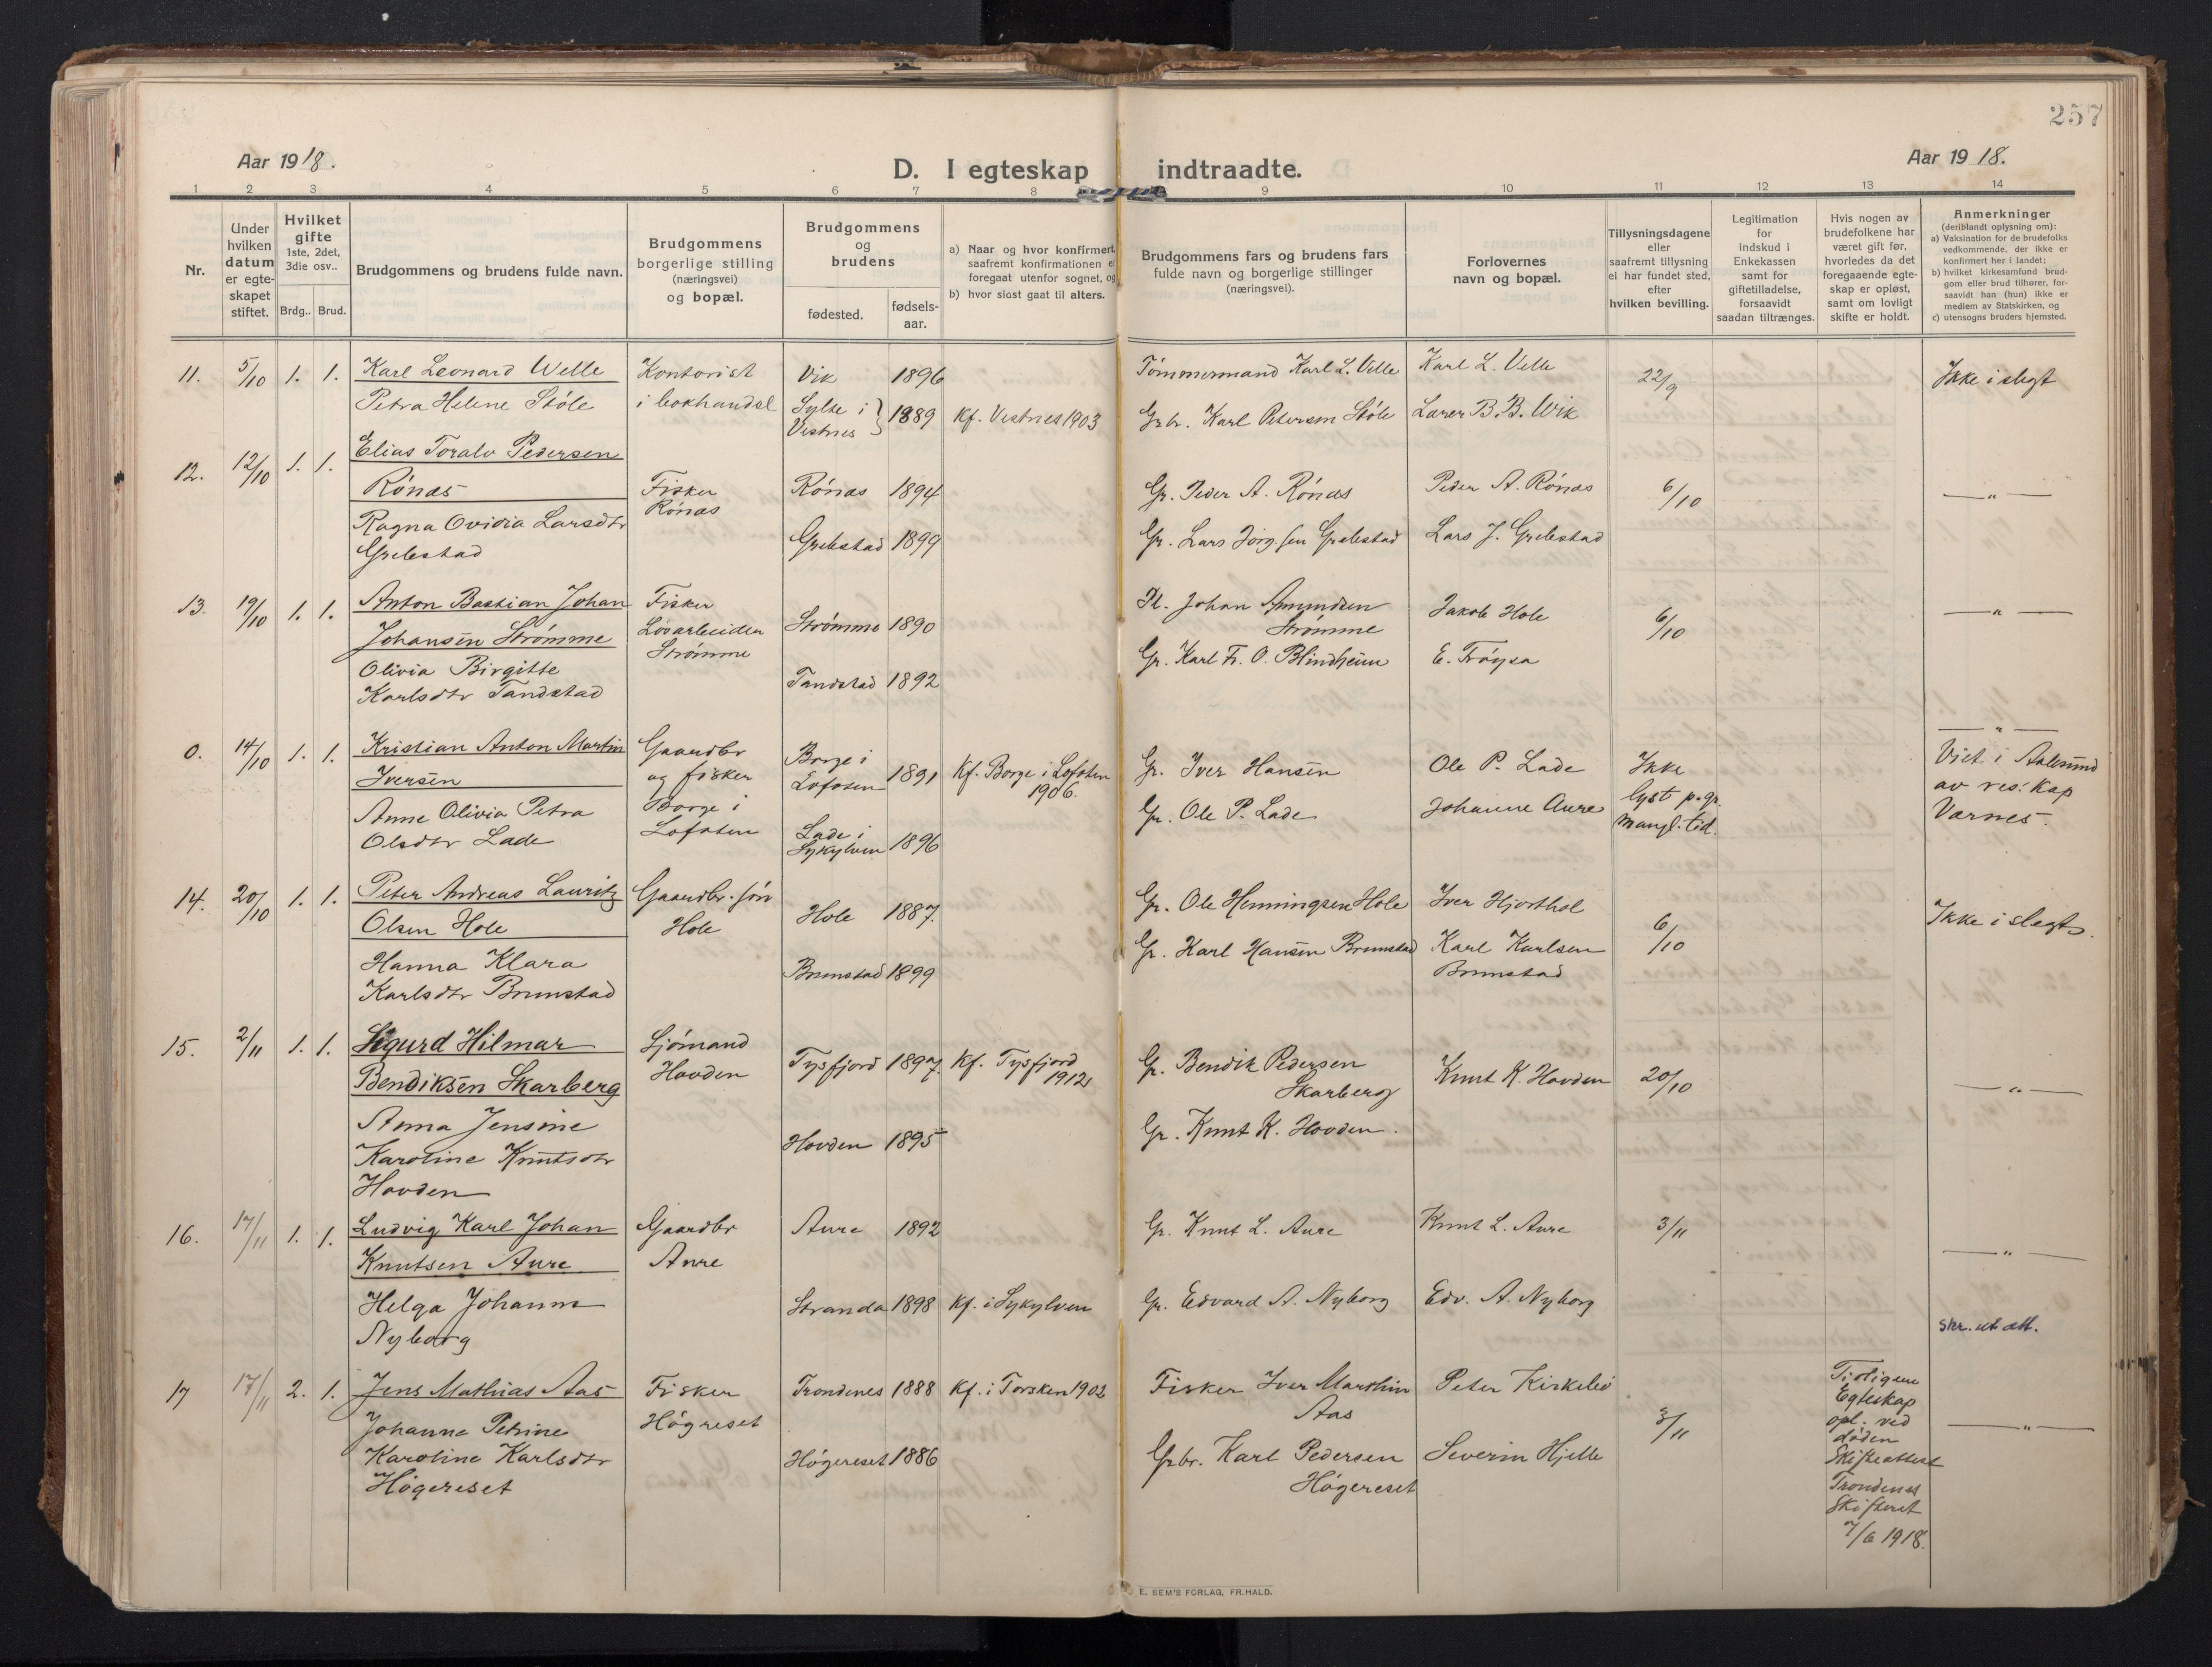 257
Aar 1918.
D. I egteskap indtraadte.
Aar 1918.
1 2 3 4 5 6 7 8 9 10 11 12 13 14
Nr.
Under hvilken datum er egteskapet stiftet.
Hvilket gifte 1ste, 2det, 3die osv..
Brdg.. Brud.
Brudgommens og brudens fulde navn.
Brudgommens borgerlige stilling (næringsvei) og bopæl.
Brudgommens og brudens
fødested.
fødsels-aar.
a) Naar og hvor konfirmert, saafremt konfirmationen er foregaat utenfor sognet, og
b) hvor sidst gaat til alters.
Brudgommens fars og brudens fars fulde navn og borgerlige stillinger (næringsvei).
Forlovernes navn og bopæl.
Tillysningsdagene eller saafremt tillysning ei har fundet sted, efter hvilken bevilling.
Legitimation for indskud i Enkekassen samt for giftetilladelse, forsaavidt saadan tiltrænges.
Hvis nogen av brudefolkene har været gift før, hvorledes da det foregaaende egteskap er opløst, samt om lovligt skifte er holdt.
Anmerkninger (deriblandt oplysning om):
a) Vaksination for de brudefolks vedkommende, der ikke er konfirmert her i landet;
b) hvilket kirkesamfund brudgom eller brud tilhører, forsaavidt han (hun) ikke er medlem av Statskirken, og
c) utensogns bruders hjemsted.
11. 5/10 1. 1. Karl Leonard Welle Kontorist Vik 1896 Tømmermand Karl L. Velle Karl L. Velle 22/9 Ikke i slegt
Petra Helene Støle i bokhandel Sylte i Vestnes 1889 Kf. Vestnes 1903 Grbr. Karl Petersen Støle Lærer B. B. Wik
12. 12/10 1. 1. Elias Toralv Pedersen
Rønæs Fisker Rønæs Rønæs 1894 Gr. Peder A. Rønæs Peder A. Rønæs 6/10 — " —
Ragna Ovidia Larsdtr
Grebstad Grebstad 1899 Gr. Lars Jørg.sen Grebstad Lars J. Grebstad
13. 19/10 1. 1. Anton Bastian Johan Fisker
Johansen Strømme Løsarbeider Strømme Strømme 1890 Johan Amundsen Strømme Jakob Hole 6/10 — " —
Olivia Birgitte
Karlsdtr Tandstad Tandstad 1892 Gr. Karl Fr. O. Blindheim E. Trøysa
0. 14/10 1. 1. Kristian Anton Martin Gaardbr
Iversen og fisker Borge i Lofoten Borge i Lofoten 1891 Kf. Borge i Lofoten 1906. Gr. Iver Hansen Ole P. Lade Ikke lyst p. gr. mangl. tid. — " — Viet i Aalesund av res. kap Værnes.
Anne Olivia Petra
Olsdtr Lade Lade i Sykylven 1896 Gr. Ole P. Lade Johanne Aure
14. 20/10 1. 1. Peter Andreas Lauritz Gaardbr. søn
Olsen Hole Hole Hole 1887. Gr. Ole Henningsen Hole Iver Hjorthol 6/10 Ikke i slegt.
Hanna Klara
Karlsdtr Brunstad Brunstad 1899 Gr. Karl Hansen Brunstad Karl Karlsen Brunstad
15. 2/11 1. 1. Sigurd Hilmar Sjømand
Bendiksen Skarberg Hovden Tysfjord 1897. Kf. Tysfjord 1912 Gr. Bendik Pedersen Skarberg Knut K. Hovden 20/10 — " —
Anna Jensine
Karoline Knutsdtr
Hovden Hovden 1895 Gr. Knut K. Hovden.
16. 17/11 1. 1. Ludvig Karl Johan Gaardbr Aure 1892 Gr. Knut L. Aure Knut L. Aure 3/11 — " —
Knutsen Aure Aure
Helga Johanne Stranda 1898 Kf. i Sykylven Gr. Edvard A. Nyborg Edv. A. Nyborg
Nyborg skr. ut att.
17 17/11 2. 1. Jens Mathias Aas Fisker Trondenes 1888 Kf. i Torsken 1902 Fisker Iver Marthin Aas Peter Kirkebø 3/11 Tidligere Egteskap opl. ved døden Skifteattest Trondenes Skifteret 7/6 1918. — " —
Johanne Petrine Høgreset
Karoline Karlsdtr Høgereset 1886 Grbr. Karl Pedersen Høgereset Severin Hjelle
Høgereset
E. SEM'S FORLAG, FR.HALD.